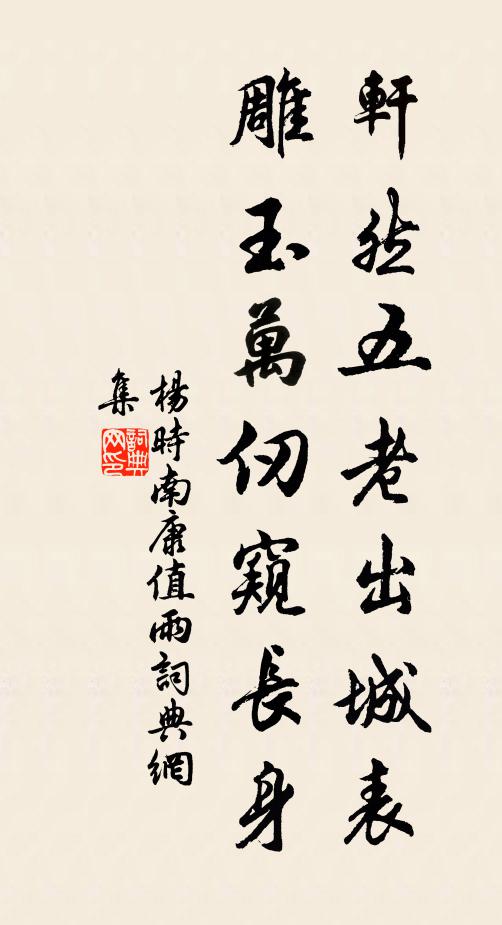 軒然五老出城表
雕玉萬仞窺長身
楊時南康值雨詞典網
集
詞典网印